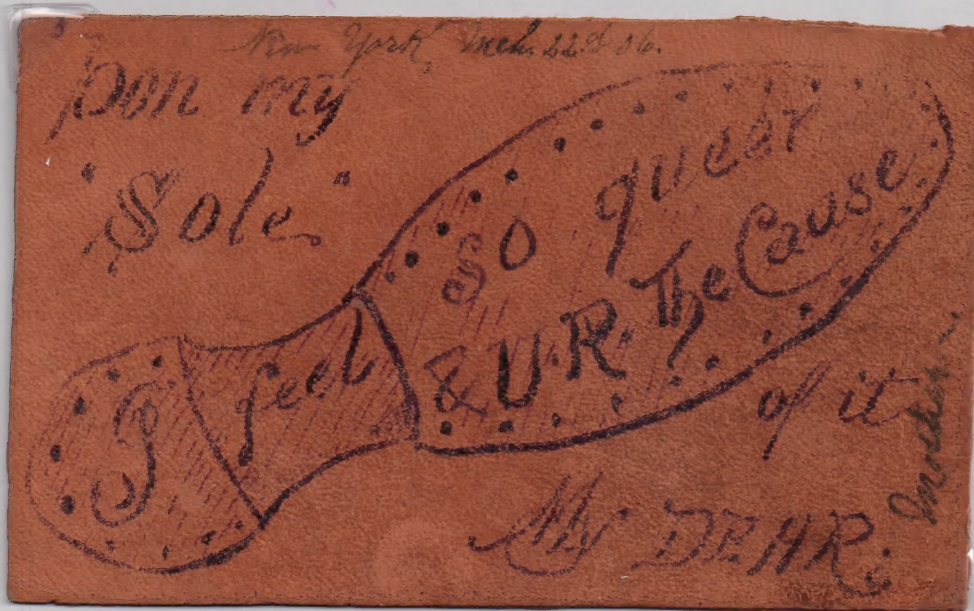 New York Mch. 22d 06.
'Pon my
"Sole"
I feel
So queer
& U.R. The Cause
of it
My DEAR.
Mother